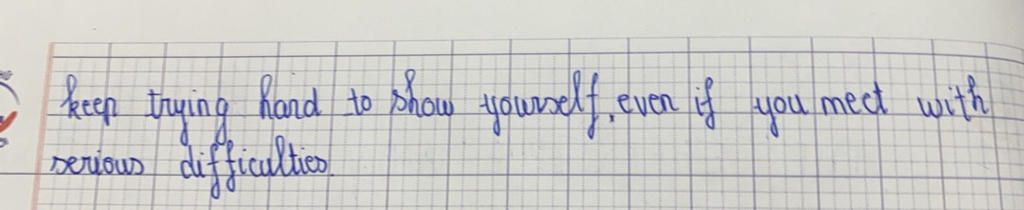 keep trying hard to show yourself, even if you meet with
serious difficulties.